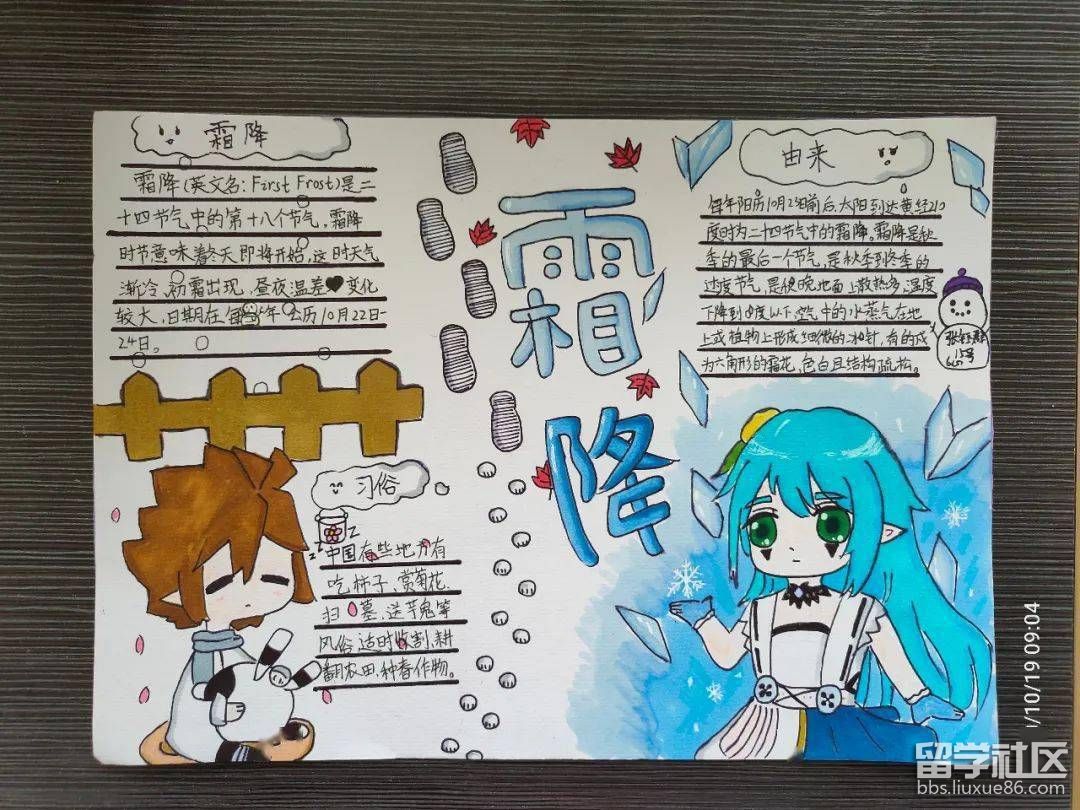 霜降
霜降(英文名:First Frost)是二
十四节气中的第十八个节气,霜降
时节意味着冬天即将开始,这时天气
渐冷,初霜出现,昼夜温差变化
较大,日期在每年公历10月22日-
24日。
霜降
由来
每年阳历10月24日前后,太阳到达黄经210
度时为二十四节气中的霜降。霜降是秋
季的最后一个节气,是秋季到冬季的
过度节气,是夜晚地面上散热多,温度
下降到0度以下,空气中的水蒸气在地
上或植物上形成细微的冰针,有的成
为六角形的霜花,色白且结构疏松。
15号
习俗
中国有些地方有
吃柿子、赏菊花、
扫墓、送芋鬼等
风俗,适时收割、耕
翻农田、种春作物。
/10/19 09:04
留学社区
bbs.liuxue86.com